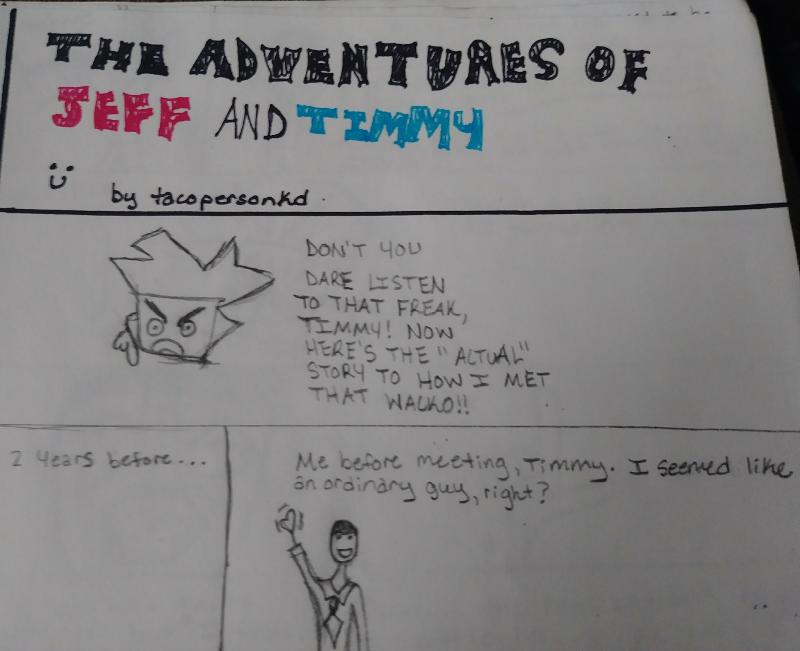 THE ADVENTURES OF
JEFF AND TIMMY
by tacopersonkd.
DON'T YOU
DARE LISTEN
TO THAT FREAK,
TIMMY! NOW
HERE'S THE "ACTUAL"
STORY TO HOW I MET
THAT WACKO!!
2 years before...
Me before meeting, Timmy. I seemed like
an ordinary guy, right?